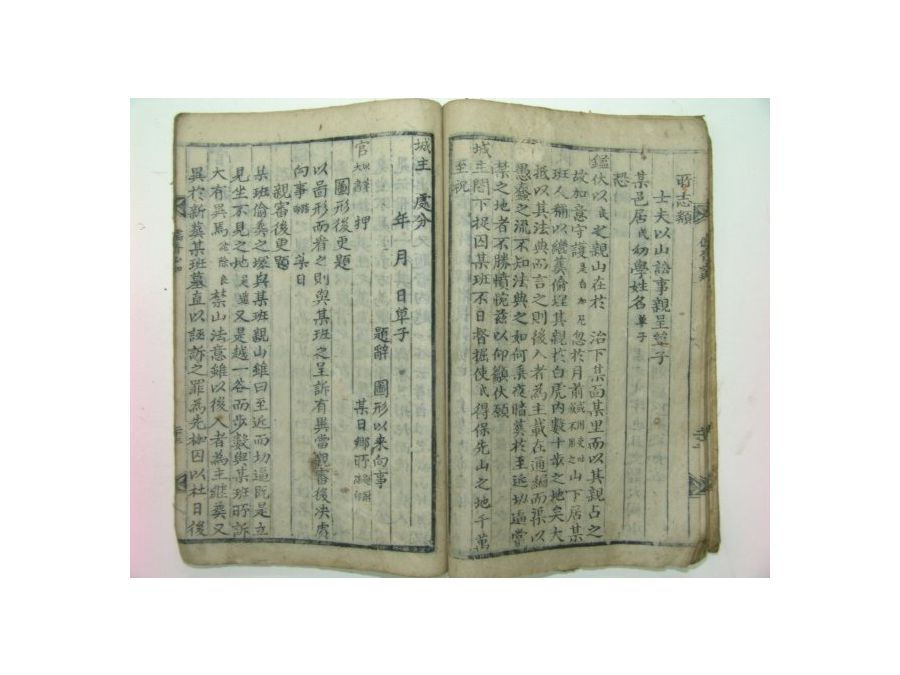 所志類
士夫以山訟事親呈單子
某邑居民幼學姓名單子
恐
鑑伏以民之親山在於 治下某面某里而以其親占之
故加意守護是白加尼忽於月前 山下居某
班人稱以繼葬偷埋其親於白虎內數十步之地矣大
抵以其法典而言之則後入者為主載在通編而渠以
愚蠢之流不知法典之如何乘夜暗葬於至近切逼當
禁之地者不勝憤惋玆以仰籲伏願
城主閤下捉囚某班不日督掘使民得保先山之地千萬
至祝
城主 處分
年 月 日單子
題辭 圖形以來向事
官 押 某日鄕所
圖形後更題
以啚形而看之則與某班之呈訴有異當親審後决處
向事 某日
親審後更題
某班偷葬之塚與某班親山雖曰至近而切逼既是立
見坐不見之地 又是越一谷而步數與某班所訴
大有異焉 禁山法意雖以後入者為主繼葬又
異於新葬某班墓直以誣訴之罪為先枷囚以杜日後